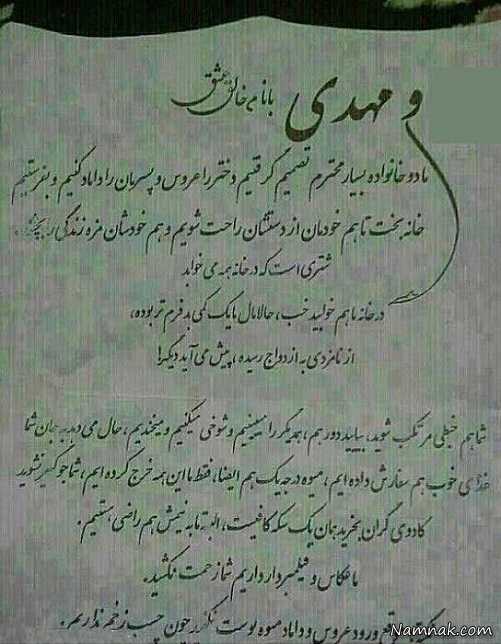 و مهدی
با نام خالق عشق
ما دو خانواده بسیار محترم تصمیم گرفتیم دختر را عروس و پسرمان را داماد کنیم و بفرستیم
خانه بخت تا هم خودمان از دستشان راحت شویم و هم خودشان مزه زندگی را بچشند.
شتری است که در خانه همه می خوابد
در خانه ما هم خوابید خب، حالا مال ما یک کمی بد فرم تر بوده،
از نامزدی به ازدواج رسیده، پیش می آید دیگر!
شما هم خبطی مرتکب شوید، بیایید دور هم، همدیگر را میبینیم و شوخی میکنیم و میخندیم، حال می دهد به جان شما
غذای خوب هم سفارش داده ایم، میوه درجه یک هم ایضا، فقط با این همه خرج کرده ایم، شما جو گیر نشوید
کادوی گران بخرید همان یک سکه کافیست، البته ما به نیمش هم راضی هستیم.
ما عکاس و فیلمبردار داریم شما زحمت نکشید.
موقع ورود عروس و داماد میوه پوست نگیرید چون چسب زخم نداریم.
Namnak.com